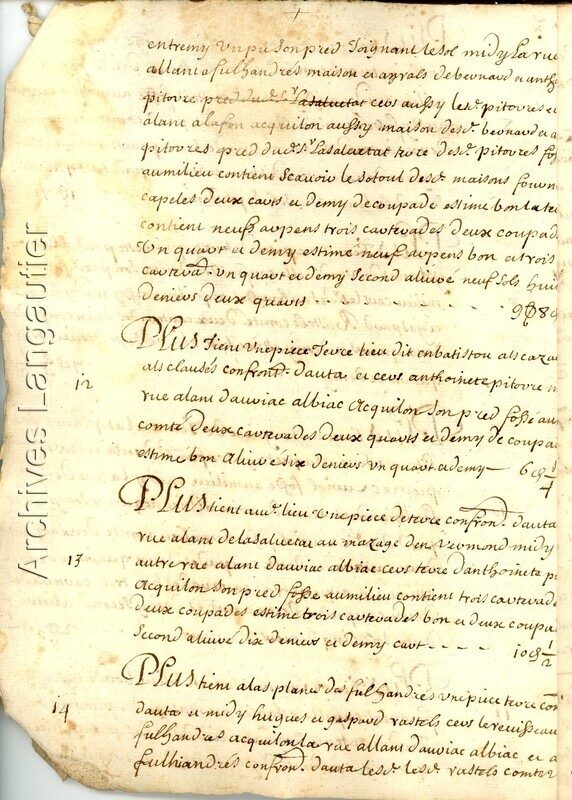 entremy Un piè son pred Joignant le sol midy la rue
allant a fulhandres maison et ayrals de bernard et anth
pitorre pred du d. Sr Lasaluetat cers aussy les d. pitorres et
alant a lafon acquilon aussy maison des d. bernard et a
pitorres pred du d. Sr Lasaluetat terre des d. pitorres fos
au milieu contient scavoir le sotoul des d. maisons fourn
capeles deux carts et demy de coupade estime bon la te
contient neuf arpens trois carterades deux coupad
Un quart et demy estime neuf arpens bon et trois
carterad. Un quart et demy second alivré neuf sols huit
deniers deux quarts
PLUS Tient Une piece Terre lieu dit en batistou als caza
12
als clauses confront. d'auta et cers anthoinete pitorre m
rue alant d'auriac albiac Acquilon son pred fossé au
comté deux carterades deux quarts et demy de coupa
estime bon Alivré six deniers Un quart et demy
PLUS tient au d. lieu Une piece de terre confron. d'auta
rue alant de lasaluetat au mazage den Vermond midy
13
autre rue alant d'auriac albiac cers terre d'anthoinete pi
Acquilon son pred fosse au milieu contient trois carterade
Deux coupades estime trois carterades bon et deux coupa
second alivré dix deniers et demy cart 10 1/2
PLUS tient a las planes de fulhandres Une piece terre con
14
dauta et midy hugues et gaspard rastols cers le reuisseau
fulhandres acquilon la rue allant d'auriac albiac et a
fulhiandres confron. dauta les d. les d. rastols comter
Archives Langautier